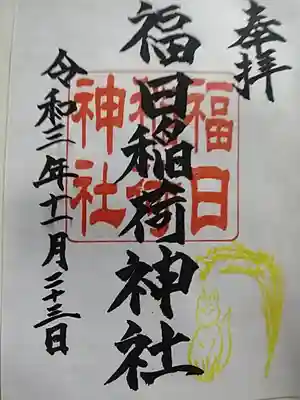 奉拝
福日稲荷神社
福日
稲荷
神社
令和三年十一月二十三日